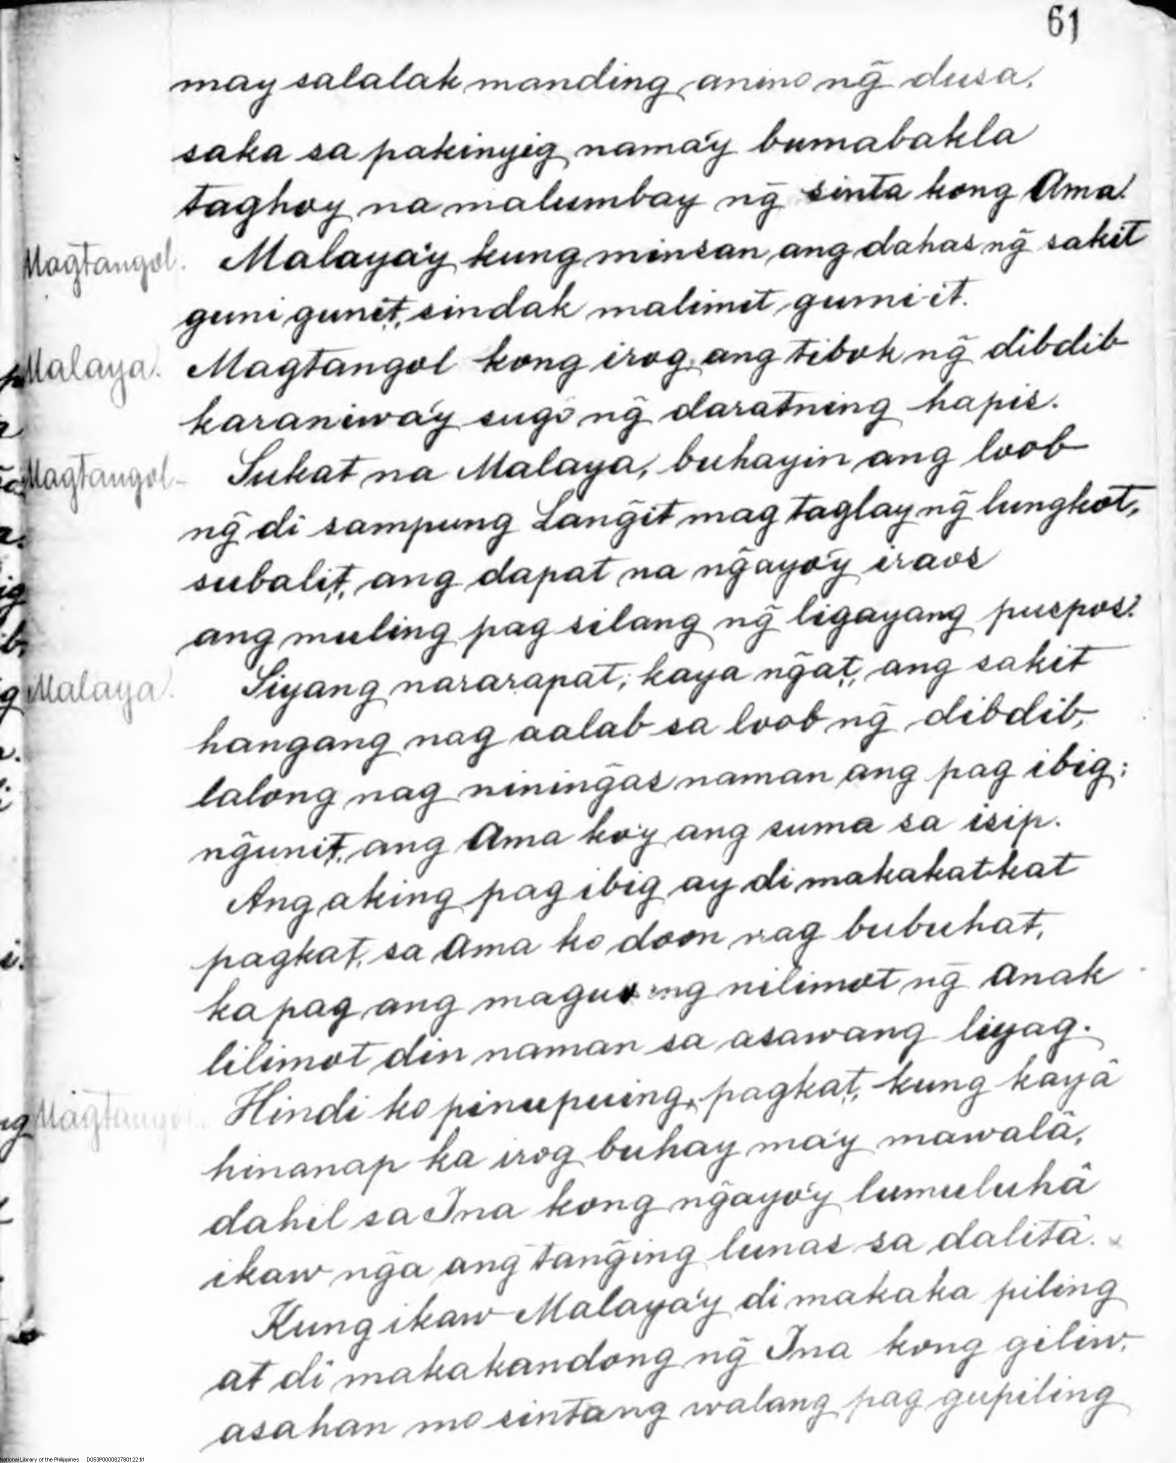 61
may salalak manding anino ng̃ dusa,
saka sa pakinyig nama'y bumabakla
taghoy na malumbay ng̃ sinta kong Ama!
Magtangol. Malaya'y kung minsan ang dahas ng̃ sakit
guni gunit, sindak malimit gumi-it.
Malaya. Magtangol kong irog, ang tibok ng̃ dibdib
karaniwa'y sugo ng̃ daratning hapis.
Magtangol- Sukat na Malaya, buhayin ang loob
ng̃ di sampung Lang̃it mag taglay ng̃ lungkot,
subalit, ang dapat na ng̃ayo'y iraos
ang muling pag silang ng̃ ligayang puspos!
Malaya. Siyang nararapat, kaya ng̃at, ang sakit
hangang nag aalab sa loob ng̃ dibdib,
lalong nag nining̃as naman ang pag ibig;
ng̃unit, ang Ama ko'y ang suma sa isip.
Ang aking pag ibig ay di makakatkat
pagkat, sa Ama ko doon nag bubuhat,
kapag ang nilimot ng̃ Anak
lilimot din naman sa asawang liyag.
Magtangol. Hindi ko pinupuing, pagkat, kung kayâ
hinanap ka irog buhay ma'y mawalâ,
dahil sa Ina kong ng̃ayo'y lumuluhâ
ikaw ng̃a ang tang̃ing lunas sa dalitâ.
Kung ikaw Malaya'y di makaka piling
at di makakandong ng̃ Ina kong giliw,
asahan mo sintang walang pag gupiling
National Library of the Philippines